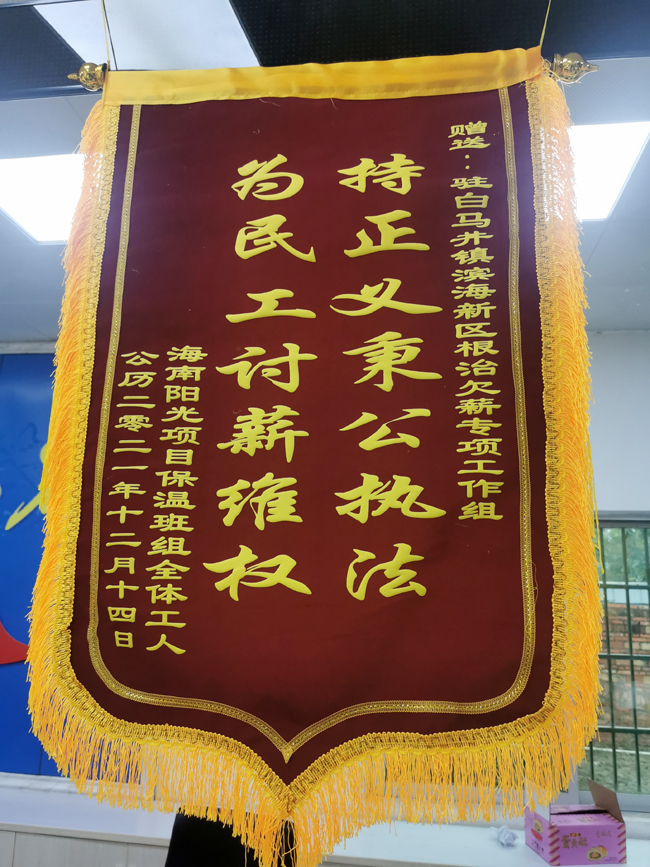 赠送：驻白马井镇滨海新区根治欠薪专项工作组
持正义秉公执法
为民工讨薪维权
海南阳光项目保温班组全体工人
公历二零二一年十二月十四日